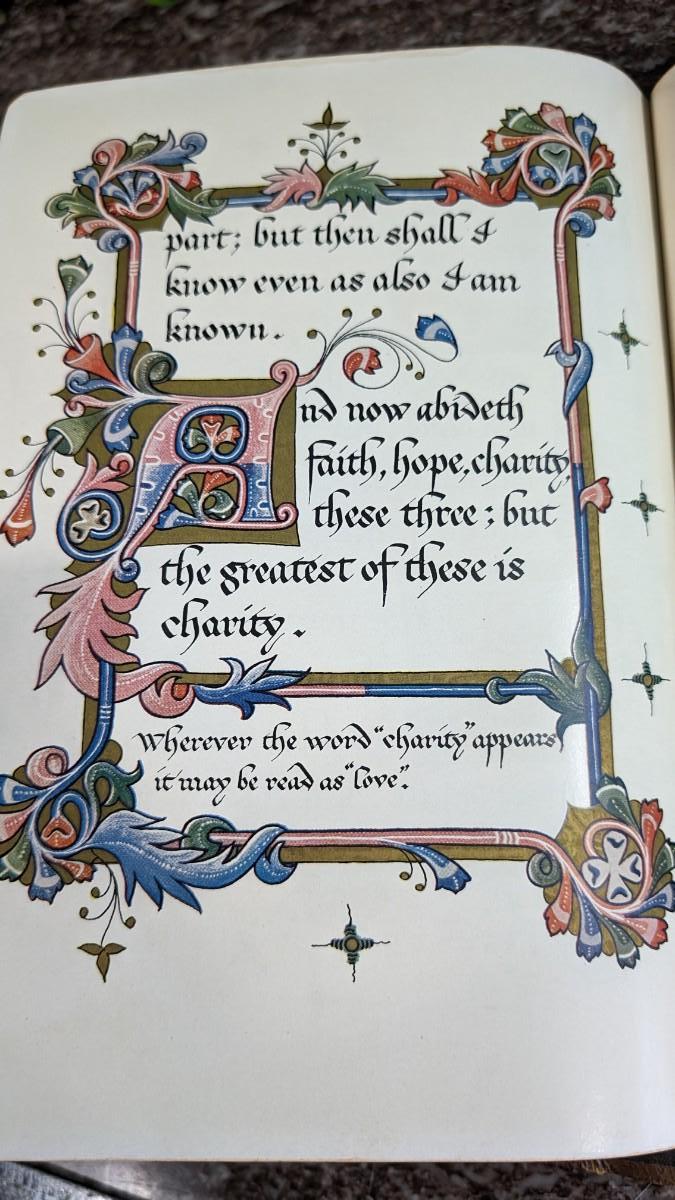 part; but then shall I
know even as also I am
known.
And now abideth
faith, hope, charity,
these three; but
the greatest of these is
charity.
Wherever the word "charity" appears
it may be read as "love".